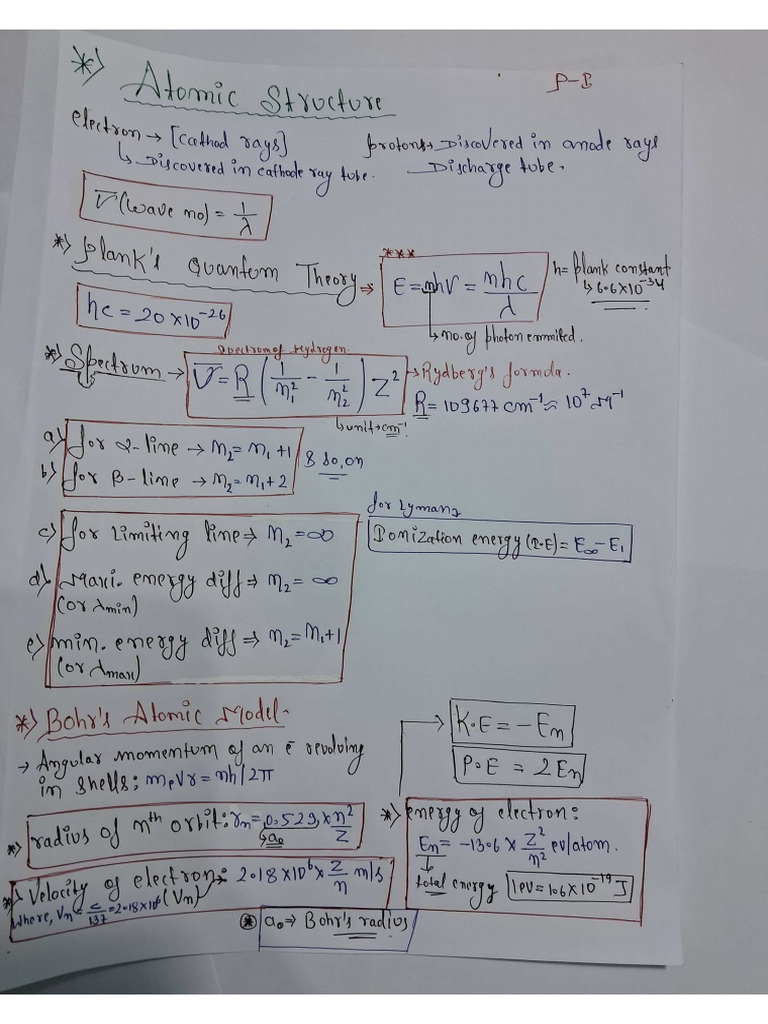 *) Atomic Structure
P-I
electron → [cathod rays]
↳ Discovered in cathode ray tube.
protons → Discovered in anode rays
Discharge tube.
ν̅ (wave no) = 1/λ
*) Plank's Quantum Theory ⇒
***
E = nhν = nhc/λ
↳ no. of photon emmited.
h = plank constant
↳ 6.6×10⁻³⁴
hc = 20×10⁻²⁶
*) Spectrum →
Spectrum of Hydrogen.
ν̅ = R (1/n₁² - 1/n₂²) Z²
→ Rydberg's formula.
↳ unit → cm⁻¹
R = 109677 cm⁻¹ ≈ 10⁷ M⁻¹
a) for α-line → n₂ = n₁+1
b) for β-line → n₂ = n₁+2
& so, on
c) for Limiting line ⇒ n₂ = ∞
for Lyman
Ionization energy (I.E) = E∞ - E₁
d) Maxi. energy diff ⇒ n₂ = ∞
(or λmin)
e) min. energy diff ⇒ n₂ = n₁+1
(or λmax)
*) Bohr's Atomic Model-
→ Angular momentum of an e̅ revolving
in shells: mₑvr = nh/2π
*) radius of nᵗʰ orbit: rₙ = 0.529 × n²/Z
↳ a₀
*) Velocity of electron: 2.18×10⁶ × Z/n m/s
(Vₙ)
where, Vₙ = c/137 = 2.18×10⁶
⊛ a₀ ⇒ Bohr's radius
K.E = -Eₙ
P.E = 2Eₙ
*) energy of electron:
Eₙ = -13.6 × Z²/n² ev/atom.
↳ total energy
1ev = 1.6×10⁻¹⁹ J